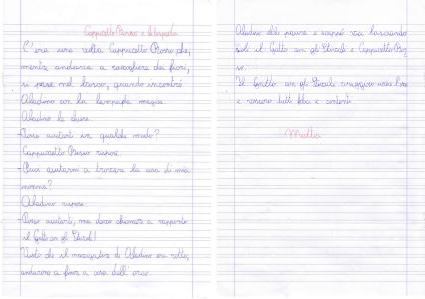 Cappuccetto Rosso e
C'era una volta Cappuccetto Rosso che,
mentre andava a raccogliere dei fiori,
si perse nel bosco, quando incontrò
Aladino con la lampada magica.
Aladino le disse:
-Posso aiutarti in qualche modo?
Cappuccetto Rosso rispose:
-Puoi aiutarmi a trovare la casa di mia
nonna?
Aladino rispose:
-Posso aiutarti, ma devo chiamare a rapporto
il Gatto con gli Stivali!
Visto che il navigatore di Aladino era rotto,
andarono a finire a casa dell'orco.
Aladino ebbe paura e scappò via lasciando
soli il Gatto con gli Stivali e Cappuccetto Ros
so.
Il Gatto con gli Stivali
e vissero tutti felici e contenti.